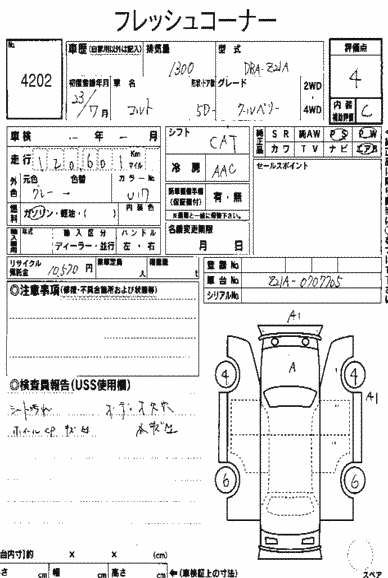 フレッシュコーナー
No.
4202
車歴 (自家用以外は記入)
排気量
1300
型式
DBA-Z21A
評価点
4
初度登録年月
23/7月
車名
コルト
形状・ドア数
5D
グレード
クールベリー
2WD
4WD
内装
補助評価
C
車検 年 月
シフト
CAT
純正品
SR 純AW PS PW
カワ TV ナビ エアB
走行
120,601
Km
マイル
冷房
AAC
セールスポイント
外色
元色
グレー
色替
→
カラーNo
U17
有・無
燃料
ガソリン・軽油・( )
内装色
名義変更期限
月 日
輸入車用
年式
輸入区分
ディーラー・並行
ハンドル
左・右
リサイクル預託金
10,570 円
乗車定員
人
積載量
t
登録No
車台No
Z21A-0707705
シリアルNo
◎注意事項(修理・不具合箇所および状態等)
◎検査員報告(USS使用欄)
シート汚れ
ホイールCP キズ
A1
A
4
4
A1
6
6
台内寸)約 × × (cm)
さ cm 幅 cm 高さ cm ←(車検証上の寸法)
スペア